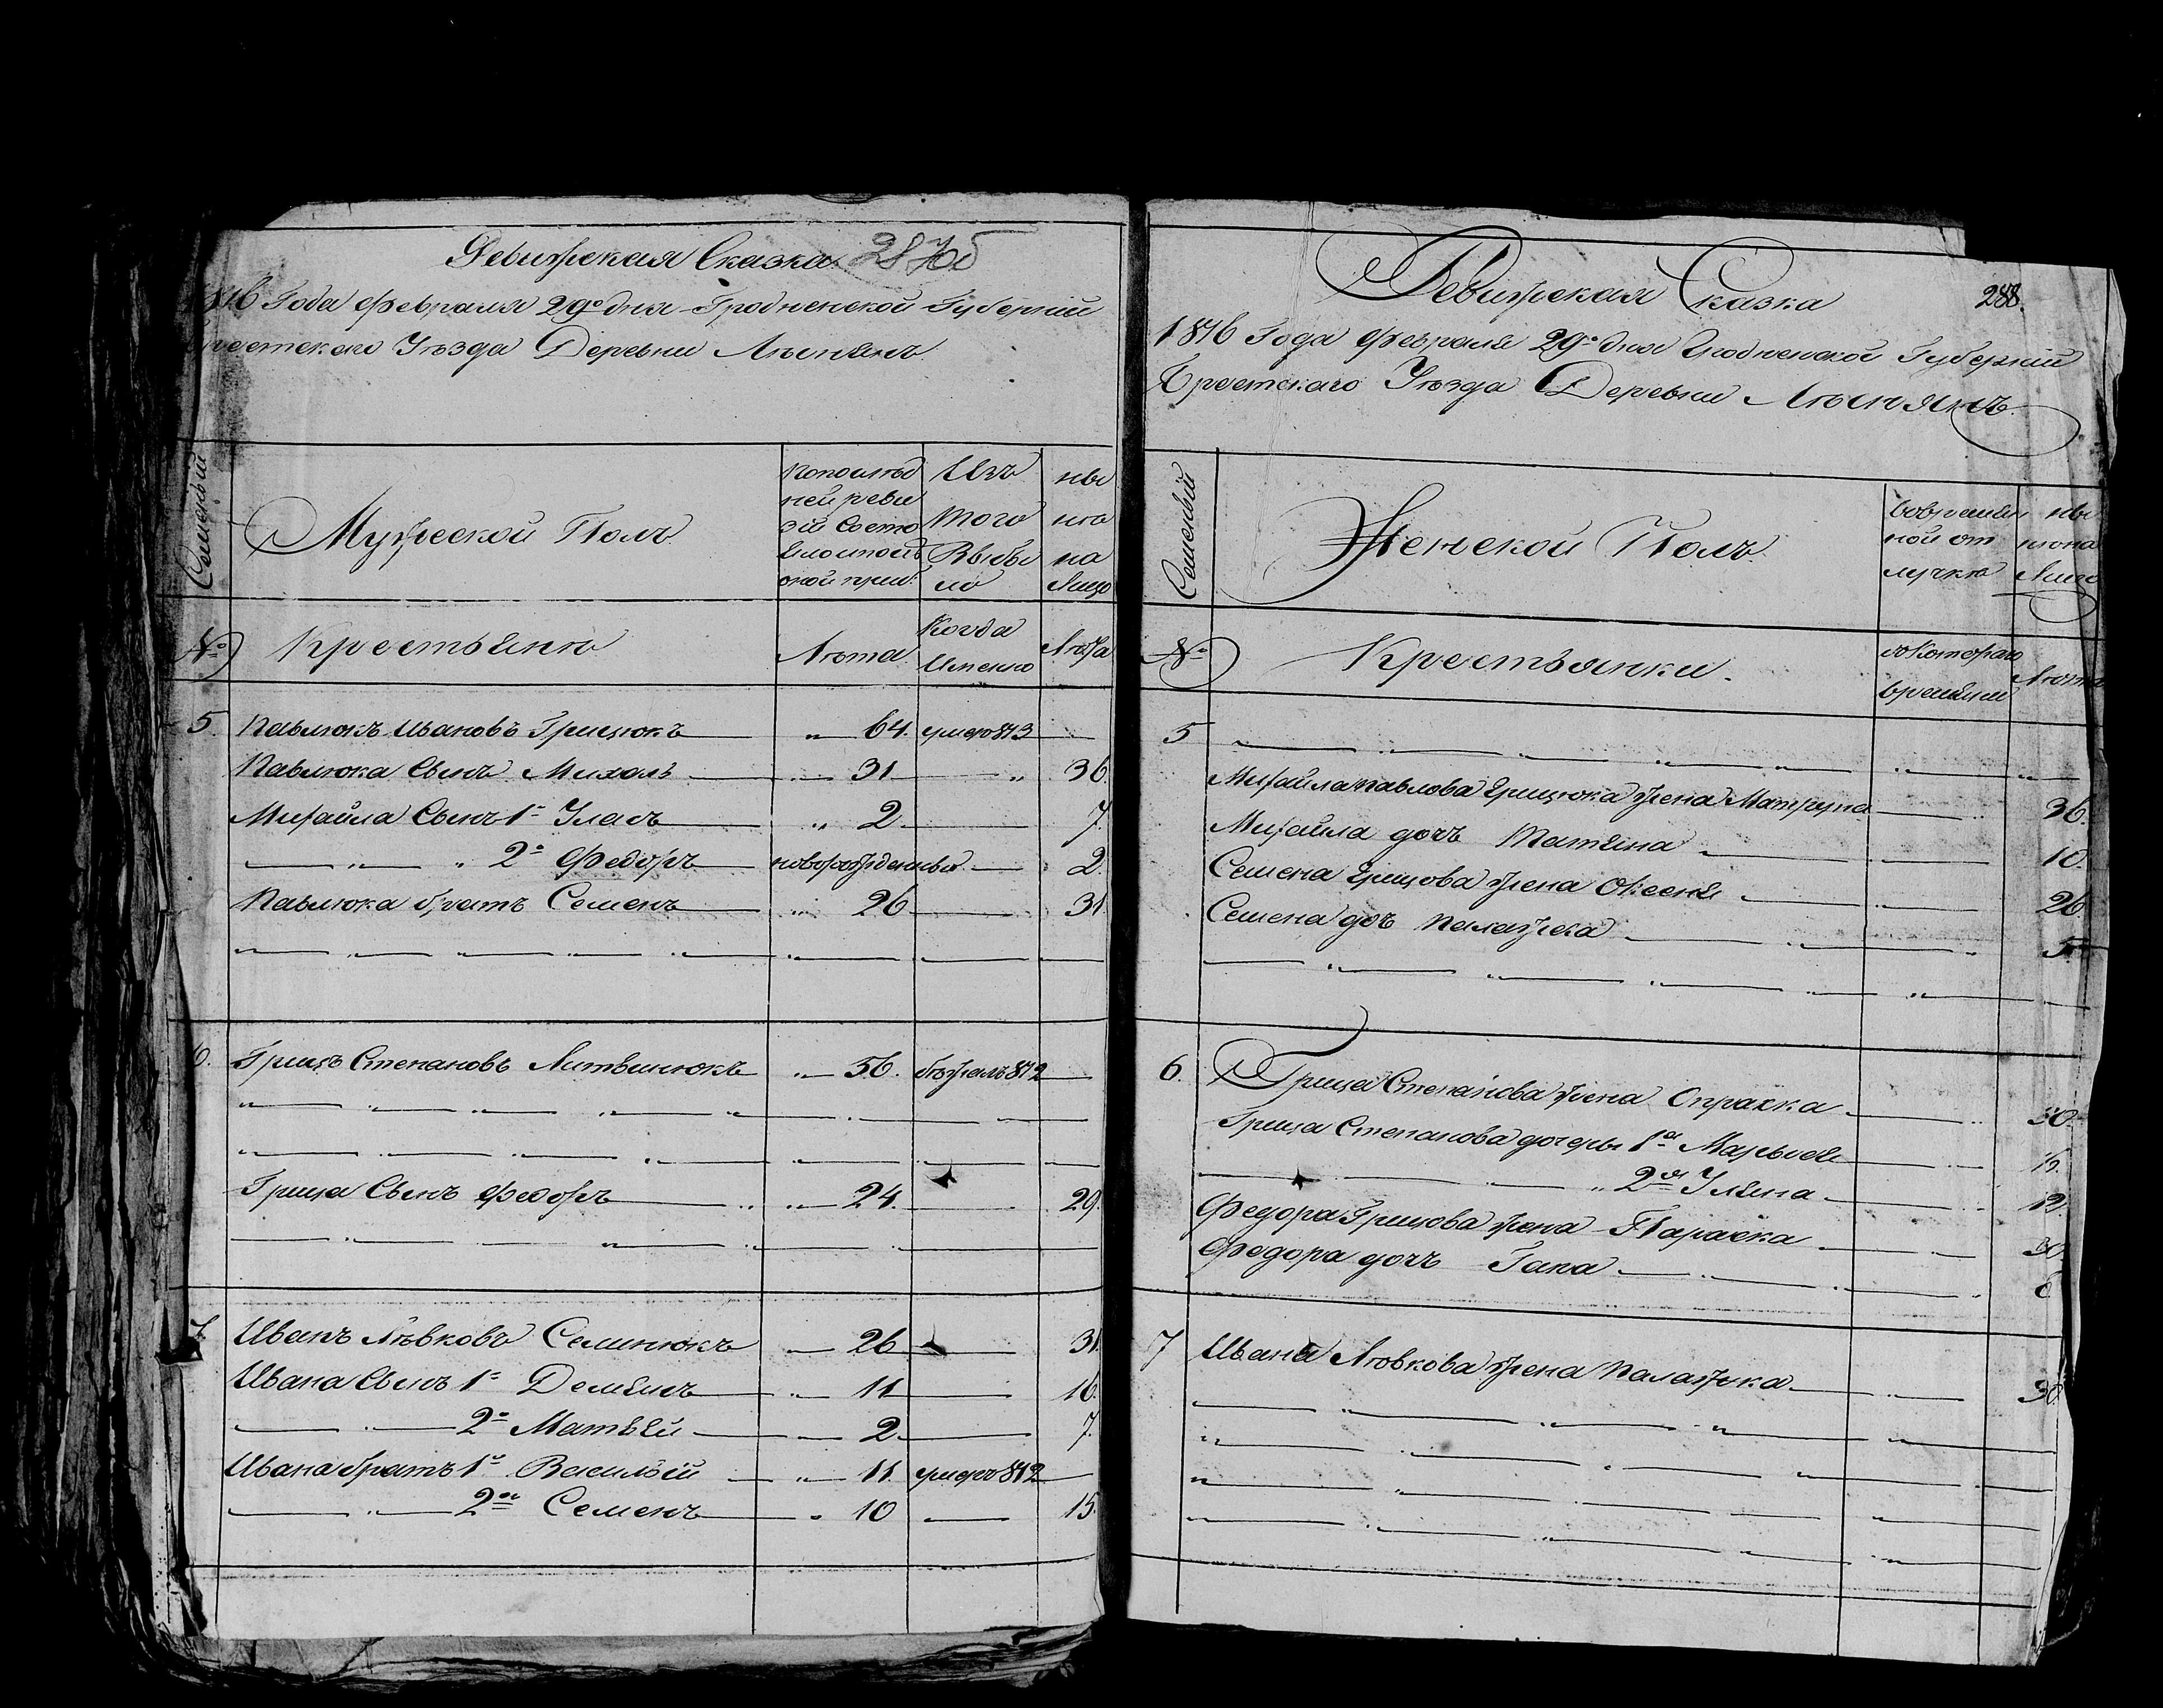 Ревижская Сказка 287об
1816 Года Февраля 29º дня Гродненской Губерніи
Брестскаго Уѣзда Деревни
Семейный
Мужеской Полъ
по послѣд
ней реви
зіи Состо
Изъ
того
Выбы
ло
ны
нѣ
на
Лицо
№
Крестьяне
Лѣта
Когда
Именно
Лѣта
5. Павлюкъ Ивановъ Грицюкъ 64. умеръ 813
Павлюка Сынъ Михалъ 31 36
Михайла Сынъ 1º Уласъ 2 7.
2º Федоръ новорожденный 2.
Павлюка братъ Семенъ 26 31
6. Грицъ Степановъ Литвинюкъ 56. бѣжалъ 812
Грица Сынъ Федоръ 24. 29.
7. Иванъ Лѣвковъ Семинюкъ 26 31.
Ивана Сынъ 1º Демянъ 11 16.
2º Матвѣй 2. 7.
Ивана братъ 1º Василій 11. умеръ 812
2ой Семенъ 10 15.
288.
Ревижская Сказка
1816 Года Февраля 29º дня Гродненской Губерніи
Брестскаго Уѣзда Деревни
Семейный
Женской Полъ
во времен
ной от
лучкѣ
ны
нѣ на
Лицо
№
Крестьянки.
съ Котораго
времени
Лѣта
5
Михайла Павлова Грицюка жена Матруна 36.
Михайла дочъ Татяна 10.
Семена Грицова жена Оксеня 26
Семена дочъ Палажка 5.
6. Грица Степанова жена Опраска 50.
Грица Степанова дочеры 1ая Марыся
2ая Уляна 12.
Федора Грицова жена Параска 30
Федора дочъ Гапа 6
7 Ивана Лѣвкова жена Палажка 30